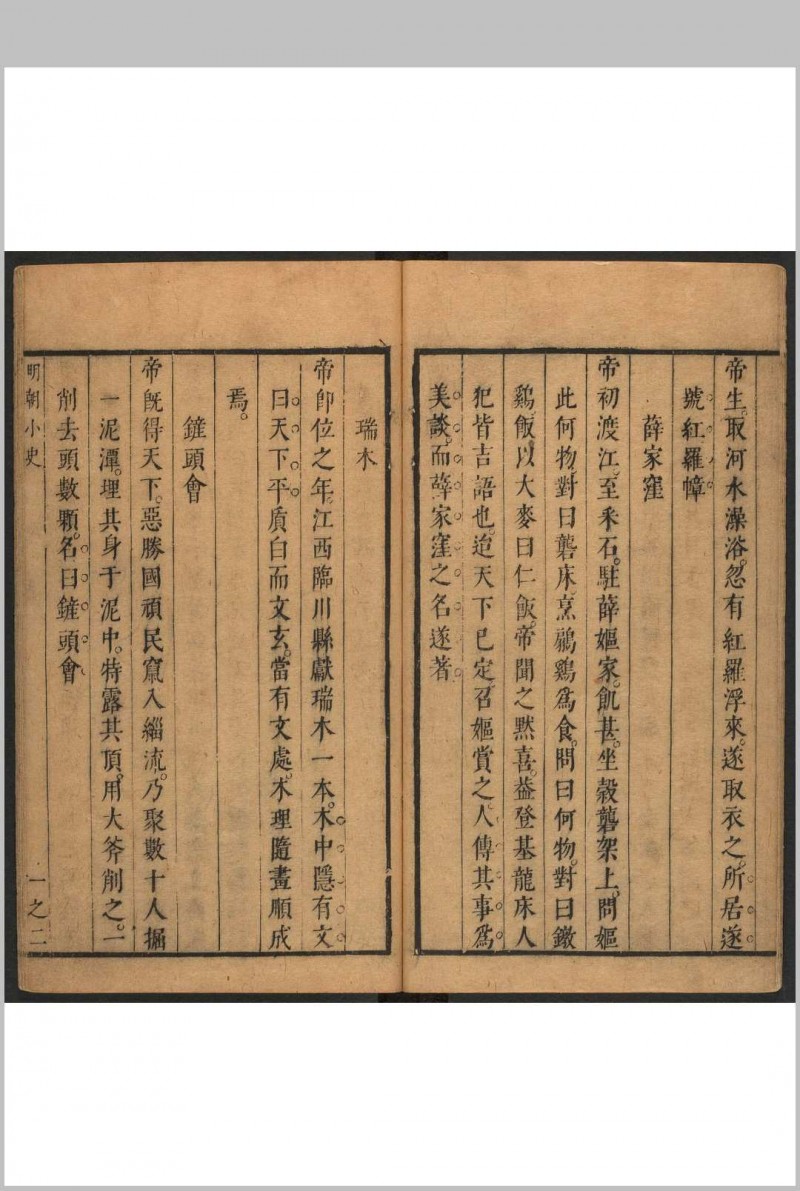 帝生。取河水澡浴。忽有紅羅浮來。遂取衣之。所居遂
號紅羅幛
薛家窪
帝初渡江。至釆石。駐薛嫗家。飢甚。坐穀礱架上。問嫗
此何物。對曰礱床。烹鵝鷄爲食。問曰何物。對曰鐓
鷄飯。以大麥曰仁飯。帝聞之黙喜。葢登基龍床人
犯皆吉語也。迨天下已定。召嫗賞之。人傳其事爲
美談。而薛家窪之名遂著
瑞木
帝卽位之年。江西臨川縣獻瑞木一本。木中隱有文
曰天下平。質白而文玄。當有文處。木理隨畫順成
焉。
鏟頭會
帝旣得天下。惡勝國頑民竄入緇流。乃聚數十人掘
一泥潭。埋其身于泥中。特露其頂。用大斧削之。一
削去頭數顆。名曰鏟頭會
明朝小史
一之二